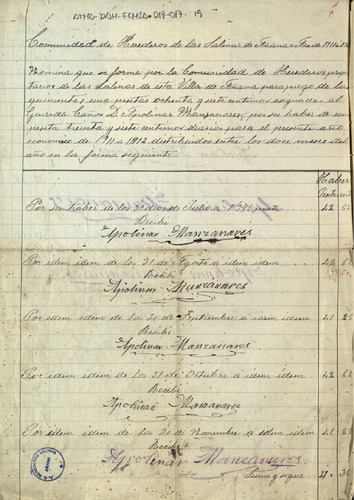 Comunidad de Herederos de las Salinas de Añana = Año de 1911 a 1912
Nomina que se forma por la Comunidad de Herederos propie
tarios de las Salinas de esta Villa de Añana para pago de las
quinientas una pesetas ochenta y siete centimos asignadas al
Guarda Caños D. Apolinar Manzanares, por su haber de una
peseta treinta y siete centimos diarios para el presente año
economico de 1911 a 1912 distribuidos entre los doce meses del
año en la forma siguiente
Haber
Por su haber de los 31 dias de Julio a 1'375 42
Recibí
Apolinar Manzanares
Por idem idem de los 31 de Agosto a idem idem 42 62
Recibí
Apolinar Manzanares
Por idem idem de los 30 de Setiembre a idem idem 41 25
Recibí
Apolinar Manzanares
Por idem idem de los 31 de Octubre a idem idem 42 62
Recibí
Apolinar Manzanares
Por idem idem de los 30 de Noviembre a idem idem 41 25
Recibí
Apolinar Manzanares
Suma y sigue